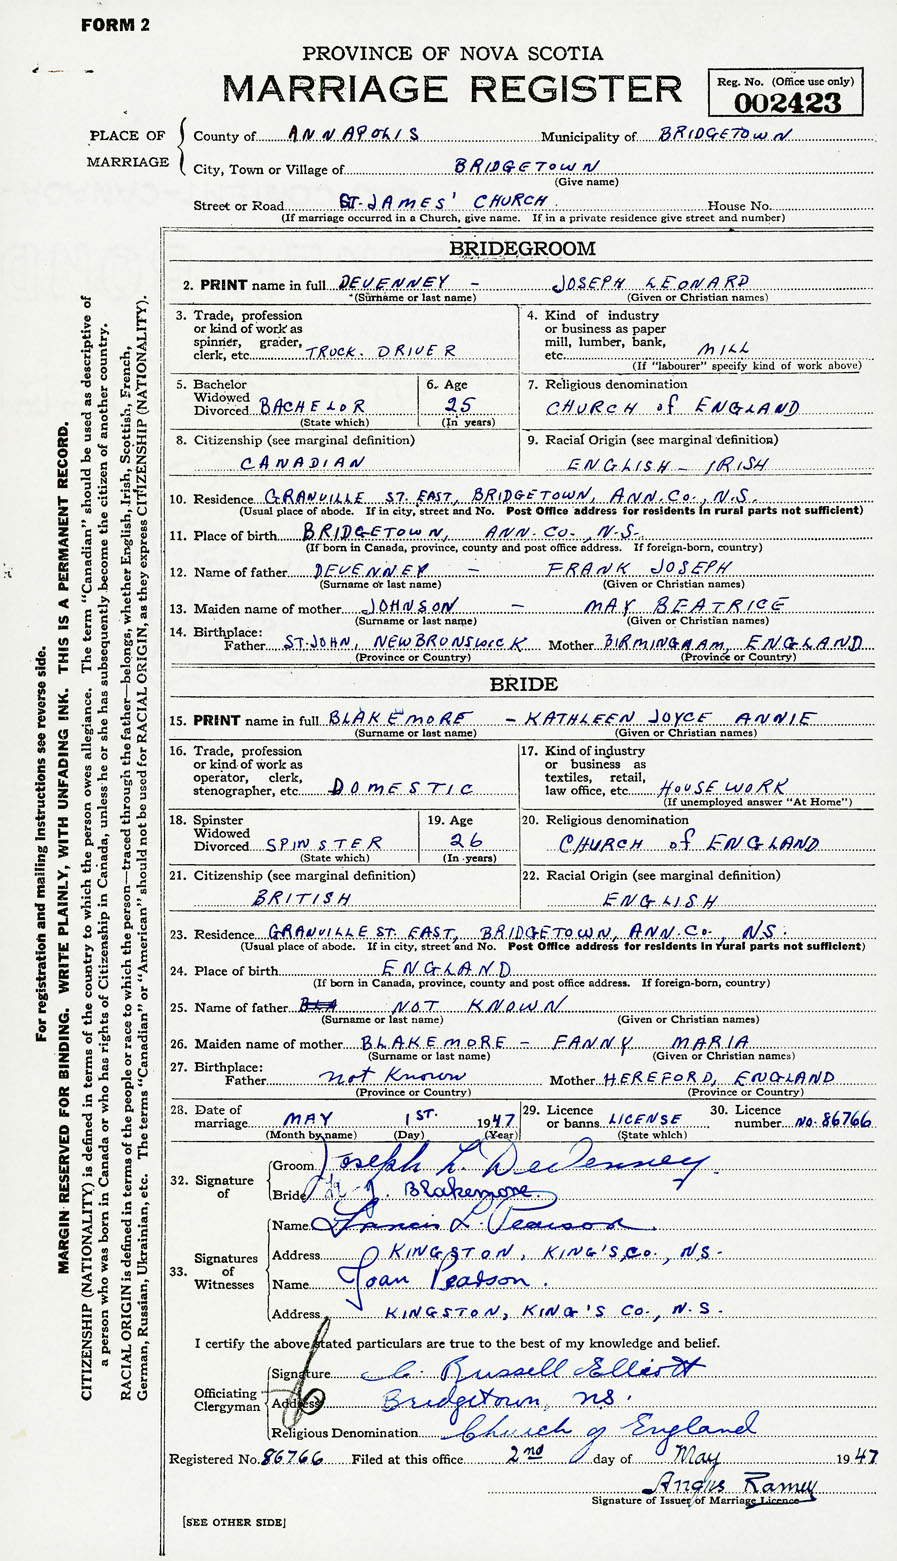 FORM 2
PROVINCE OF NOVA SCOTIA
MARRIAGE REGISTER
Reg. No. (Office use only)
002423
PLACE OF MARRIAGE
County of ANNAPOLIS Municipality of BRIDGETOWN
City, Town or Village of BRIDGETOWN
(Give name)
Street or Road ST. JAMES' CHURCH House No.
(If marriage occurred in a Church, give name. If in a private residence give street and number)
BRIDEGROOM
2. PRINT name in full DEVENNEY - JOSEPH LEONARD
(Surname or last name) (Given or Christian names)
3. Trade, profession
or kind of work as
spinner, grader,
clerk, etc. TRUCK. DRIVER
4. Kind of industry
or business as paper
mill, lumber, bank,
etc. MILL
(If "labourer" specify kind of work above)
5. Bachelor
Widowed
Divorced BACHELOR
(State which)
6. Age
25
(In years)
7. Religious denomination
CHURCH of ENGLAND
8. Citizenship (see marginal definition)
CANADIAN
9. Racial Origin (see marginal definition)
ENGLISH - IRISH
10. Residence GRANVILLE ST. EAST, BRIDGETOWN, ANN. CO., N.S.
(Usual place of abode. If in city, street and No. Post Office address for residents in rural parts not sufficient)
11. Place of birth BRIDGETOWN, ANN. CO., N.S.
(If born in Canada, province, county and post office address. If foreign-born, country)
12. Name of father DEVENNEY - FRANK JOSEPH
(Surname or last name) (Given or Christian names)
13. Maiden name of mother JOHNSON - MAY BEATRICE
(Surname or last name) (Given or Christian names)
14. Birthplace:
Father ST. JOHN, NEW BRUNSWICK Mother BIRMINGHAM, ENGLAND
(Province or Country) (Province or Country)
BRIDE
15. PRINT name in full BLAKEMORE - KATHLEEN JOYCE ANNIE
(Surname or last name) (Given or Christian names)
16. Trade, profession
or kind of work as
operator, clerk,
stenographer, etc. DOMESTIC
17. Kind of industry
or business as
textiles, retail,
law office, etc. HOUSEWORK
(If unemployed answer "At Home")
18. Spinster
Widowed
Divorced SPINSTER
(State which)
19. Age
26
(In years)
20. Religious denomination
CHURCH of ENGLAND
21. Citizenship (see marginal definition)
BRITISH
22. Racial Origin (see marginal definition)
ENGLISH
23. Residence GRANVILLE ST. EAST, BRIDGETOWN, ANN. CO., N.S.
(Usual place of abode. If in city, street and No. Post Office address for residents in rural parts not sufficient)
24. Place of birth ENGLAND
(If born in Canada, province, county and post office address. If foreign-born, country)
25. Name of father BLA NOT KNOWN
(Surname or last name) (Given or Christian names)
26. Maiden name of mother BLAKEMORE - FANNY MARIA
(Surname or last name) (Given or Christian names)
27. Birthplace:
Father not Known Mother HEREFORD, ENGLAND
(Province or Country) (Province or Country)
28. Date of
marriage MAY 1ST. 1947
(Month by name) (Day) (Year)
29. Licence
or banns LICENSE
(State which)
30. Licence
number NO. 86766
32. Signature of
Groom Joseph L. DeVenney.
Bride J. Blakemore
33. Signatures of Witnesses
Name Francis L. Pearson.
Address KINGSTON, KING'S, CO., N.S.
Name Joan Pearson.
Address KINGSTON, KING'S CO., N.S.
I certify the above stated particulars are true to the best of my knowledge and belief.
Officiating Clergyman
Signature C. Russell Elliott
Address Bridgetown, NS.
Religious Denomination Church of England
Registered No. 86766 Filed at this office 2nd day of May 1947
Angus Ramey
Signature of Issuer of Marriage Licence
[SEE OTHER SIDE]
For registration and mailing instructions see reverse side.
MARGIN RESERVED FOR BINDING. WRITE PLAINLY, WITH UNFADING INK. THIS IS A PERMANENT RECORD.
CITIZENSHIP (NATIONALITY) is defined in terms of the country to which the person owes allegiance. The term "Canadian" should be used as descriptive of
a person who was born in Canada or who has rights of Citizenship in Canada, unless he or she has subsequently become the citizen of another country.
RACIAL ORIGIN is defined in terms of the people or race to which the person—traced through the father—belongs, whether English, Irish, Scottish, French,
German, Russian, Ukrainian, etc. The terms "Canadian" or "American" should not be used for RACIAL ORIGIN, as they express CITIZENSHIP (NATIONALITY).